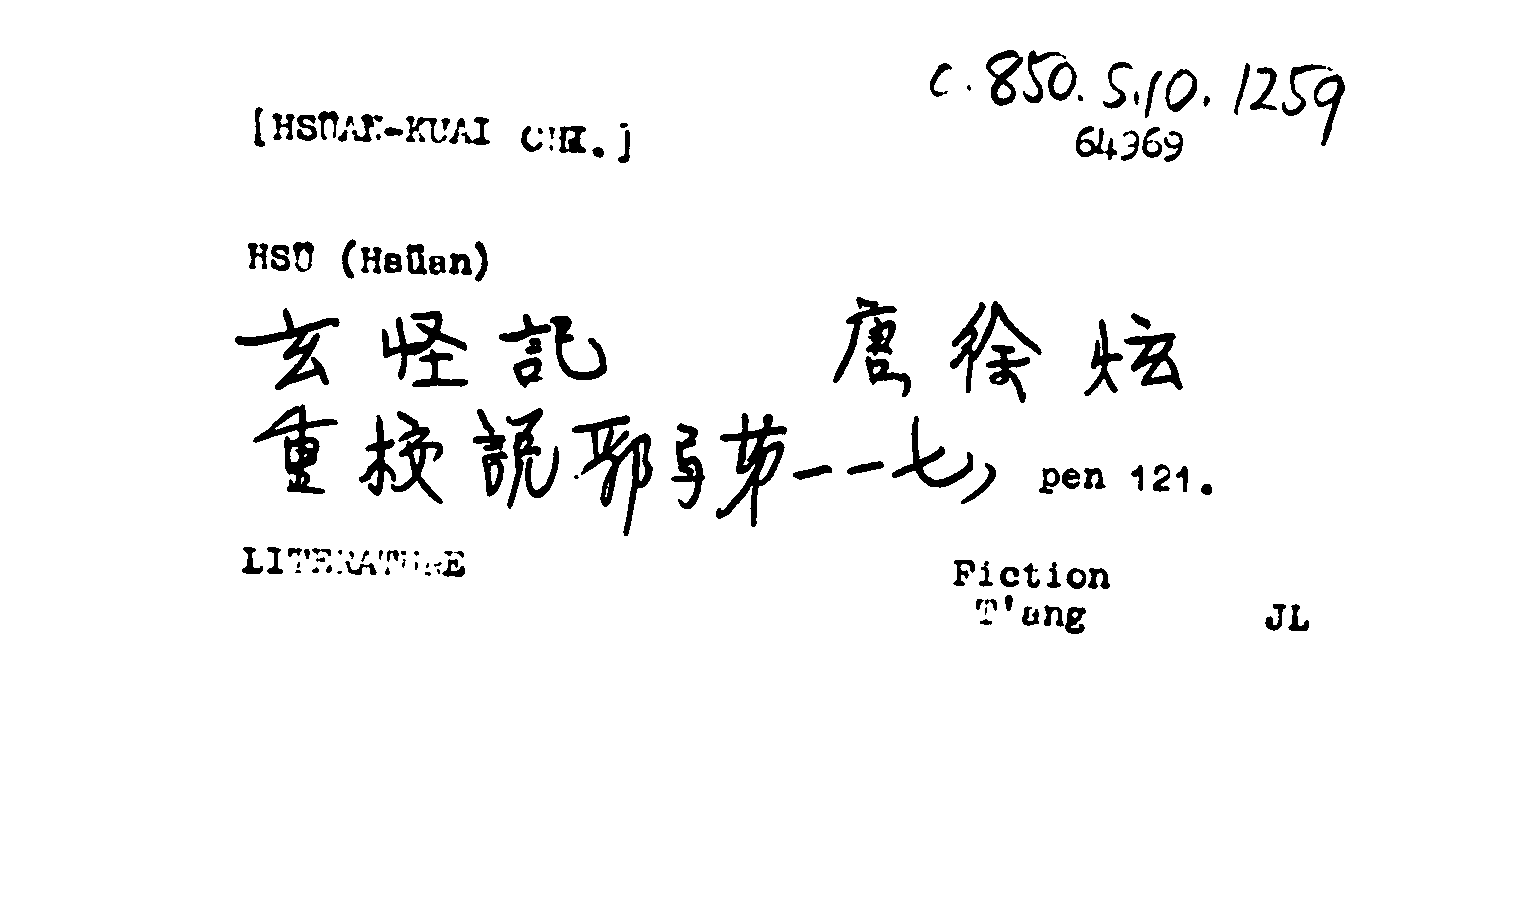 c.850.5.10.1259
[HSÜAN-KUAI CHI.]
64369
HSÜ (Hsüan)
玄怪記 唐徐炫
重校説郛弓第一一七, pen 121.
LITERATURE Fiction
T'ang JL